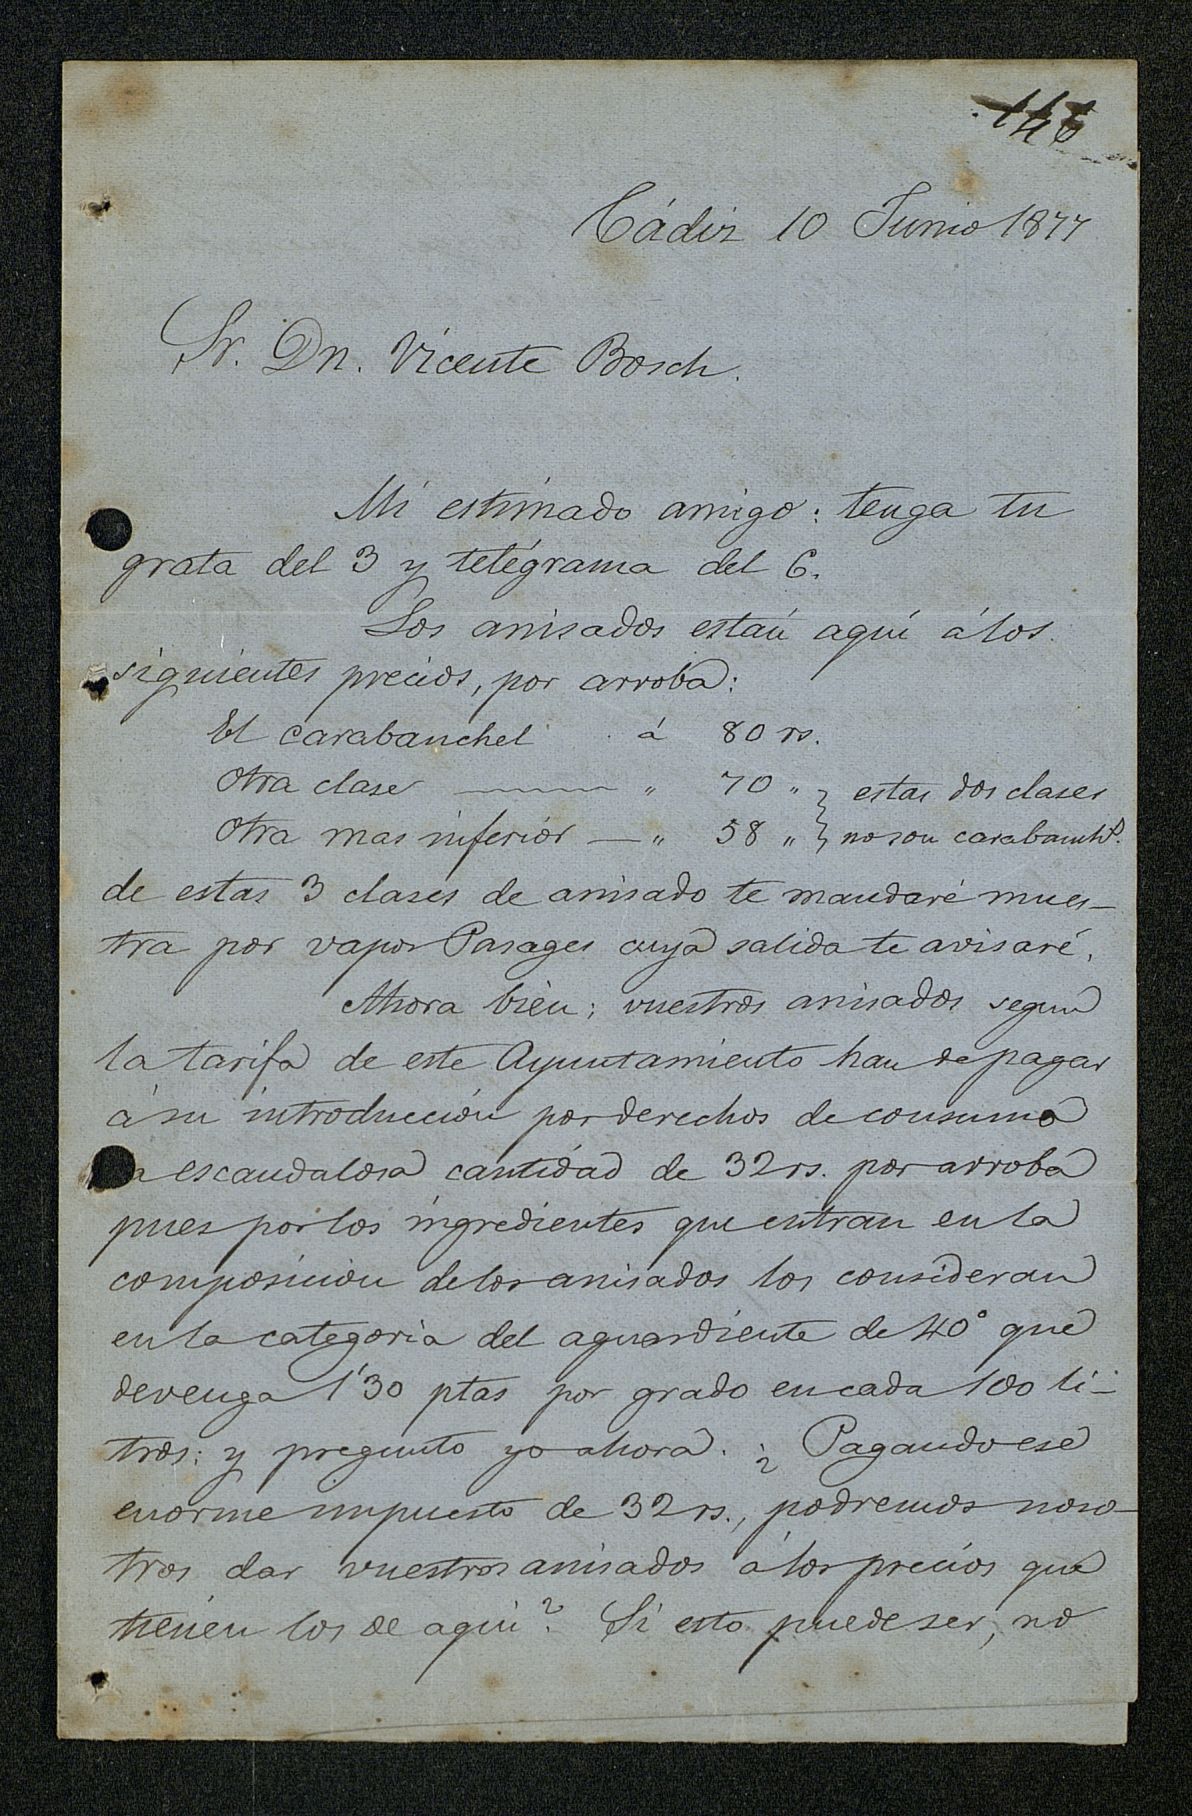 146
Cádiz 10 Junio 1877
Sr. Dn. Vicente Bosch.
Mi estimado amigo: tengo tu
grata del 3 y telégrama del 6.
Los anisados están aquí á los
siguientes precios, por arroba:
El carabanchel á 80 rs.
Otra clase —— " 70 " } estas dos clases
Otra mas inferior — " 58 " } no son carabanchl.
de estas 3 clases de anisado te mandaré mues-
tra por vapor Pasages cuya salida te avisaré.
Ahora bien; vuestros anisados segun
la tarifa de este Ayuntamiento han de pagar
á su introducción por derechos de consumo
escandalosa cantidad de 32 rs. por arroba
pues por los ingredientes que entran en la
composicion de los anisados los consideran
en la categoria del aguardiente de 40° que
devenga 1'30 ptas por grado en cada 100 li-
tros: y pregunto yo ahora. ¿Pagando ese
enorme impuesto de 32 rs., podremos noso-
tros dar vuestros anisados á los precios que
tienen los de aqui? Si esto puede ser, no